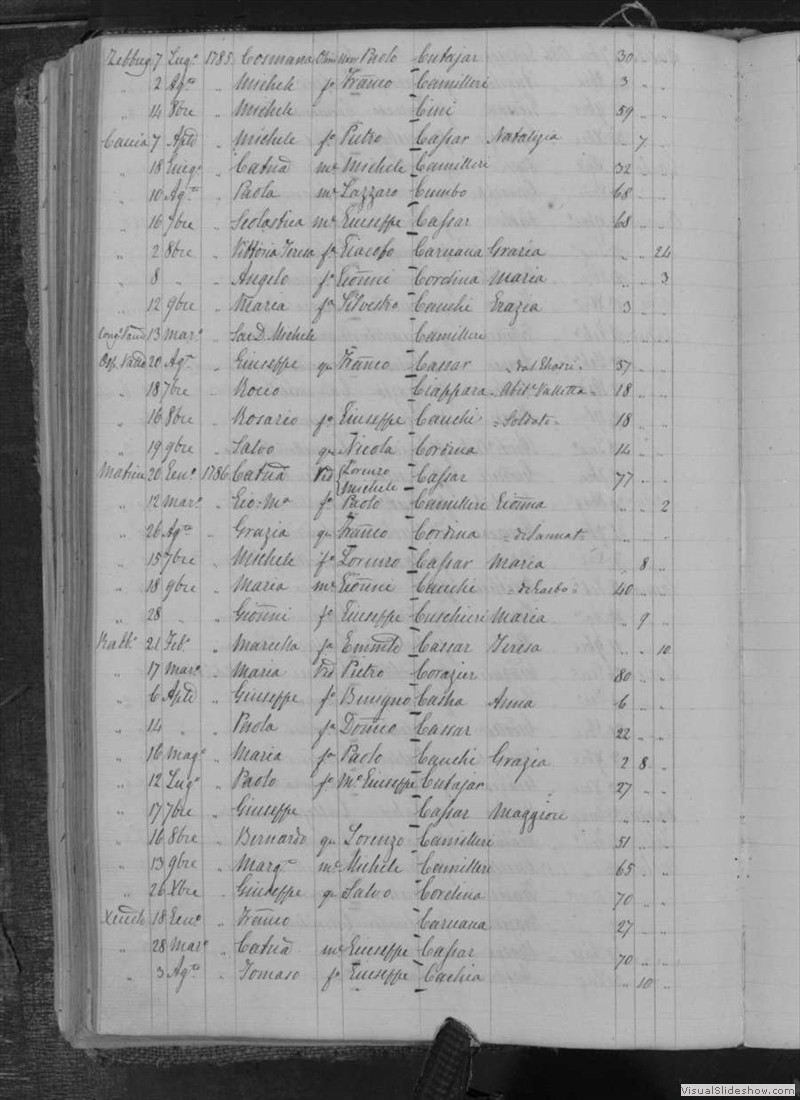 Zebbug 7 Lug.º 1785 Cosmana Paolo Cutajar 30 " "
" 2 Ag.to " Michele f.º Franco Camilleri 3 " "
" 14 8bre " Michele Cini 59 " "
Caccia 7 Aple " Michele f.º Pietro Cassar Natalizia " 7 "
" 18 Giug.º " Catna m.e Michele Camilleri 32 " "
" 10 Ag.to " Paola m.e Lazzaro Cumbo 68 " "
" 16 7bre " Scolastica m.e Giuseppe Cassar 68 " "
" 2 8bre " Vittoria Teresa f.a Giacobo Caruana Grazia " " 24
" 8 " " Angelo f.º Gionni Cordina Maria " " 3
" 12 9bre " Maria f.a Silvestro Cauchi Grazia 3 " "
13 Mar.º " Sac D. Michele Camilleri " " "
20 Ag.to " Giuseppe q.m Franco Cassar 57 " "
" 18 7bre " Rocco Ciappara Abit.e Valletta 18 " "
" 16 8bre " Rosario f.º Giuseppe Cauchi = Soldato = 18 " "
" 19 9bre " Salvo q.m Nicola Cordina 14 " "
Matrice 20 Gen.º 1786 Catna Vid { Lorenzo Michele Cassar 77 " "
" 12 Mar.º " Gio: M.a f.º Paolo Camilleri Gionna " " 2
" 26 Ag.to " Grazia q.m Franco Cordina = di Sannat = " " "
" 15 7bre " Michele f.º Lorenzo Cassar Maria " 8 "
" 18 9bre " Maria m.e Gionni Cauchi 40 " "
" 28 " " Gionni f.º Giuseppe Cuschieri Maria " 9 "
Rabb.º 21 Feb.º " Marcella f.a Emmle Cassar Teresa " " 10
" 17 Mar.º " Maria Vid Pietro Corazier 80 " "
" 6 Aple " Giuseppe f.º Benigno Casha Anna 6 " "
" 14 " " Paola f.a Domco Cassar 22 " "
" 16 Mag.º " Maria f.a Paolo Cauchi Grazia 2 8 "
" 12 Lug.º " Paolo f.º M.º Giuseppe Cutajar 27 " "
" 17 7bre " Giuseppe Cassar Maggiore " " "
" 16 8bre " Bernardo q.m Lorenzo Camilleri 51 " "
" 13 9bre " Marg.ta m.e Michele Camilleri 65 " "
" 26 Xbre " Giuseppe q.m Salvo Cordina 70 " "
Xeuch 18 Gen.º " Franco Caruana 27 " "
" 28 Mar.º " Catna m.e Giuseppe Cassar 70 " "
" 3 Ag.to " Tomaso f.º Giuseppe Cachia " 10 "
VisualSlideshow.com